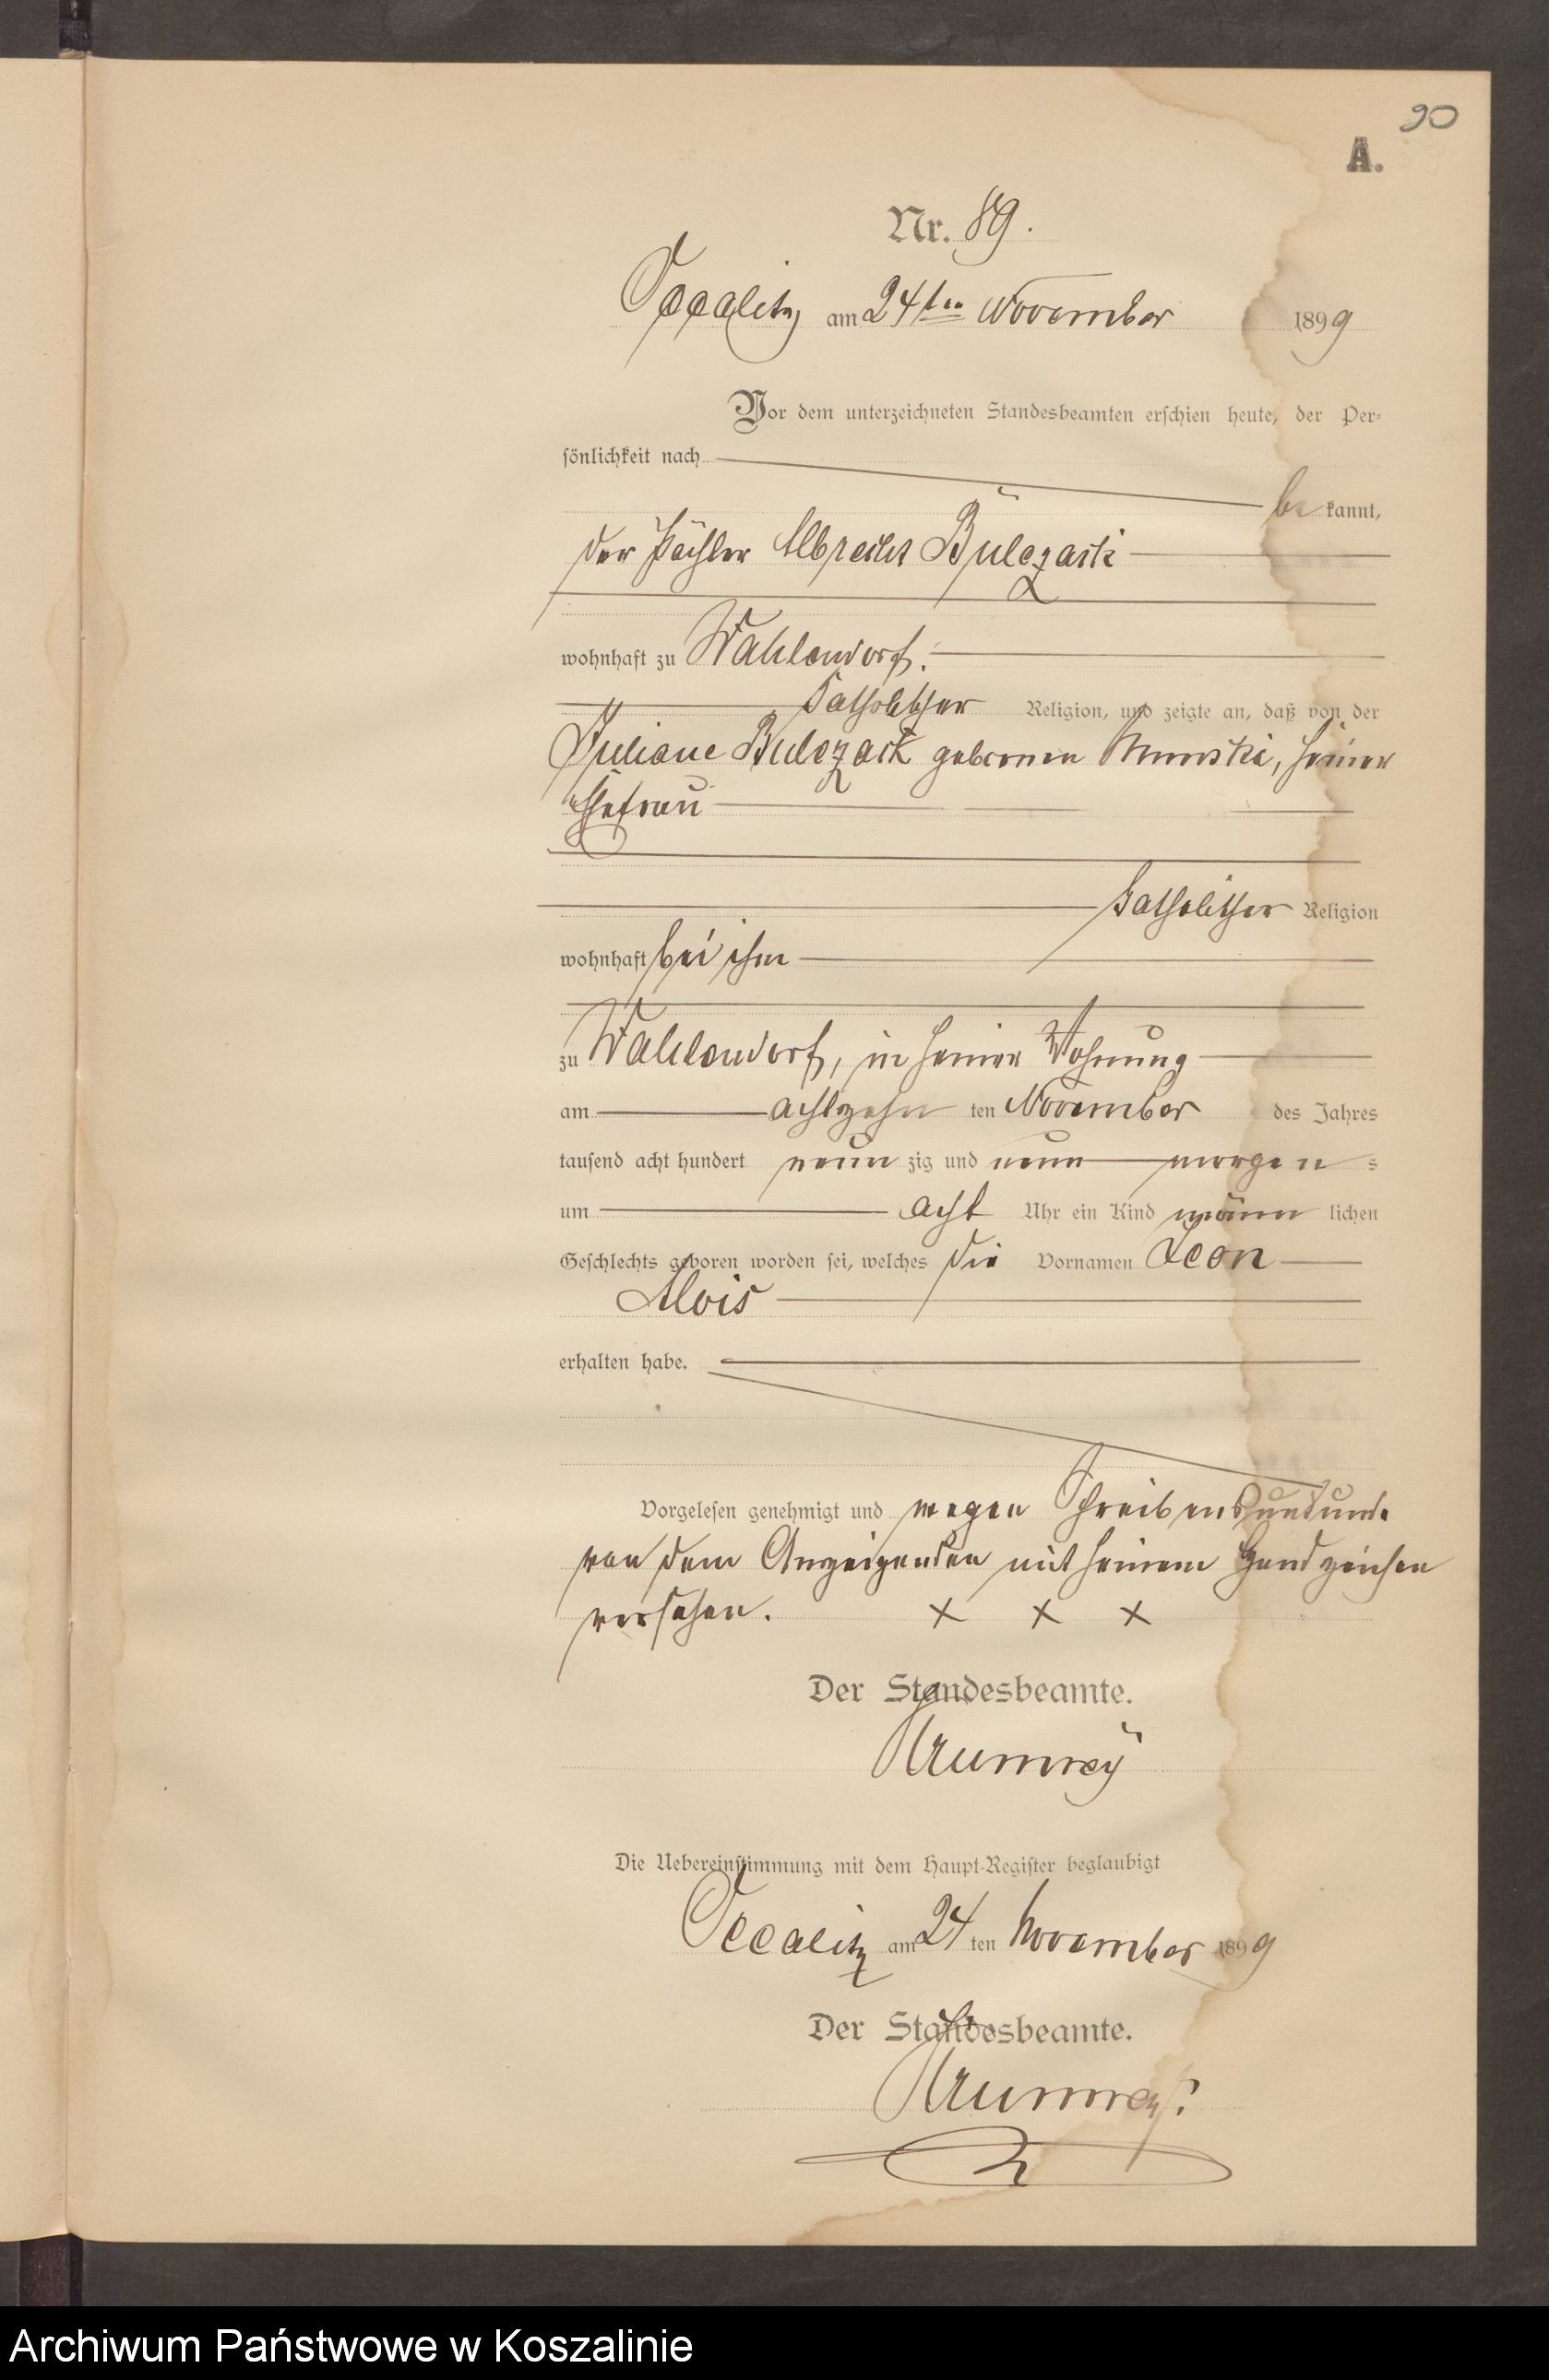 90
A.
Nr. 89.
Occalitz am 24ten November 1899
Vor dem unterzeichneten Standesbeamten erschien heute, der Per-
sönlichkeit nach
be kannt,
der Pächter Albrecht Bulczak
wohnhaft zu Wahlendorf.
katholischer Religion, und zeigte an, daß von der
Juliane Bulczak geborenen seiner
Ehefrau
katholischer Religion
wohnhaft bei ihm
zu Wahlendorf, in seiner Wohnung
am achtzehn ten November des Jahres
tausend acht hundert neun zig und neun morgen s
um acht Uhr ein Kind männ lichen
Geschlechts geboren worden sei, welches die Vornamen Leon
Alois
erhalten habe.
Vorgelesen genehmigt und wegen Schreibensunkunde
von dem Anzeigenden mit seinem Handzeichen
versehen. x x x
Der Standesbeamte.
Krumrey
Die Uebereinstimmung mit dem Haupt-Register beglaubigt
Occalitz am 24 ten November 1899
Der Standesbeamte.
Krumrey.
Archiwum Państwowe w Koszalinie